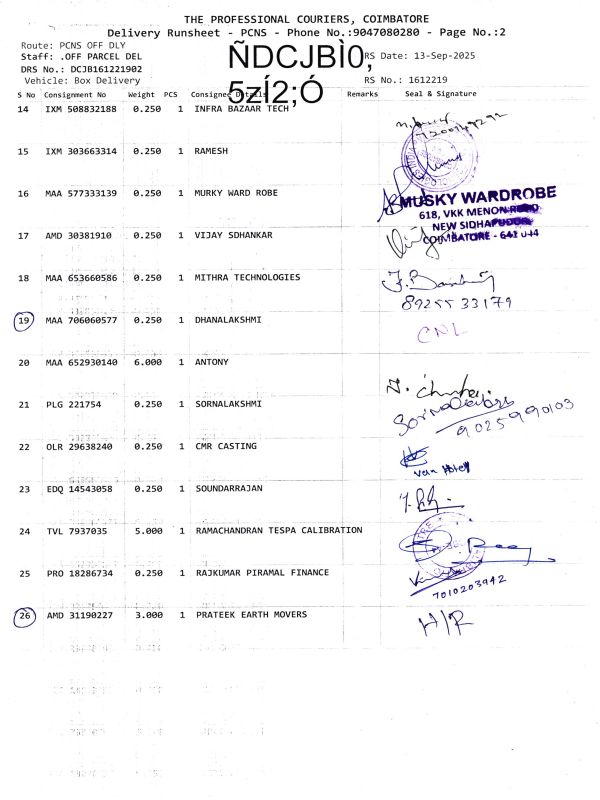 THE PROFESSIONAL COURIERS, COIMBATORE
Delivery Runsheet - PCNS - Phone No.:9047080280 - Page No.:2
Route: PCNS OFF DLY
Staff: .OFF PARCEL DEL
ÑDCJBÌ0,
RS Date: 13-Sep-2025
DRS No.: DCJB161221902
Vehicle: Box Delivery
5zÍ2;Ó
RS No.: 1612219
S No Consignment No Weight PCS Consignee Details Remarks Seal & Signature
14 IXM 508832188 0.250 1 INFRA BAZAAR TECH
15 IXM 303663314 0.250 1 RAMESH
16 MAA 577333139 0.250 1 MURKY WARD ROBE
MUSKY WARDROBE
618, VKK MENON ROAD
NEW SIDHAPUDUR
COIMBATORE - 641 044
17 AMD 30381910 0.250 1 VIJAY SDHANKAR
18 MAA 653660586 0.250 1 MITHRA TECHNOLOGIES
8925533179
19 MAA 706060577 0.250 1 DHANALAKSHMI CNL
20 MAA 652930140 6.000 1 ANTONY
21 PLG 221754 0.250 1 SORNALAKSHMI
9025990103
22 OLR 29638240 0.250 1 CMR CASTING
23 EDQ 14543058 0.250 1 SOUNDARRAJAN
24 TVL 7937035 5.000 1 RAMACHANDRAN TESPA CALIBRATION
25 PRO 18286734 0.250 1 RAJKUMAR PIRAMAL FINANCE
7010203942
26 AMD 31190227 3.000 1 PRATEEK EARTH MOVERS H/R